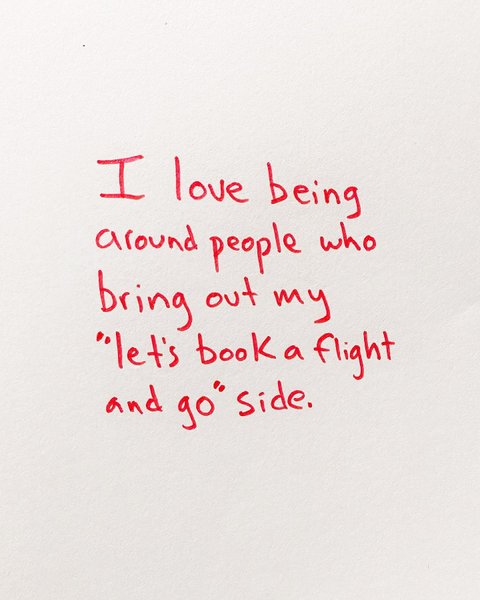 I love being
around people who
bring out my
"let's book a flight
and go" side.